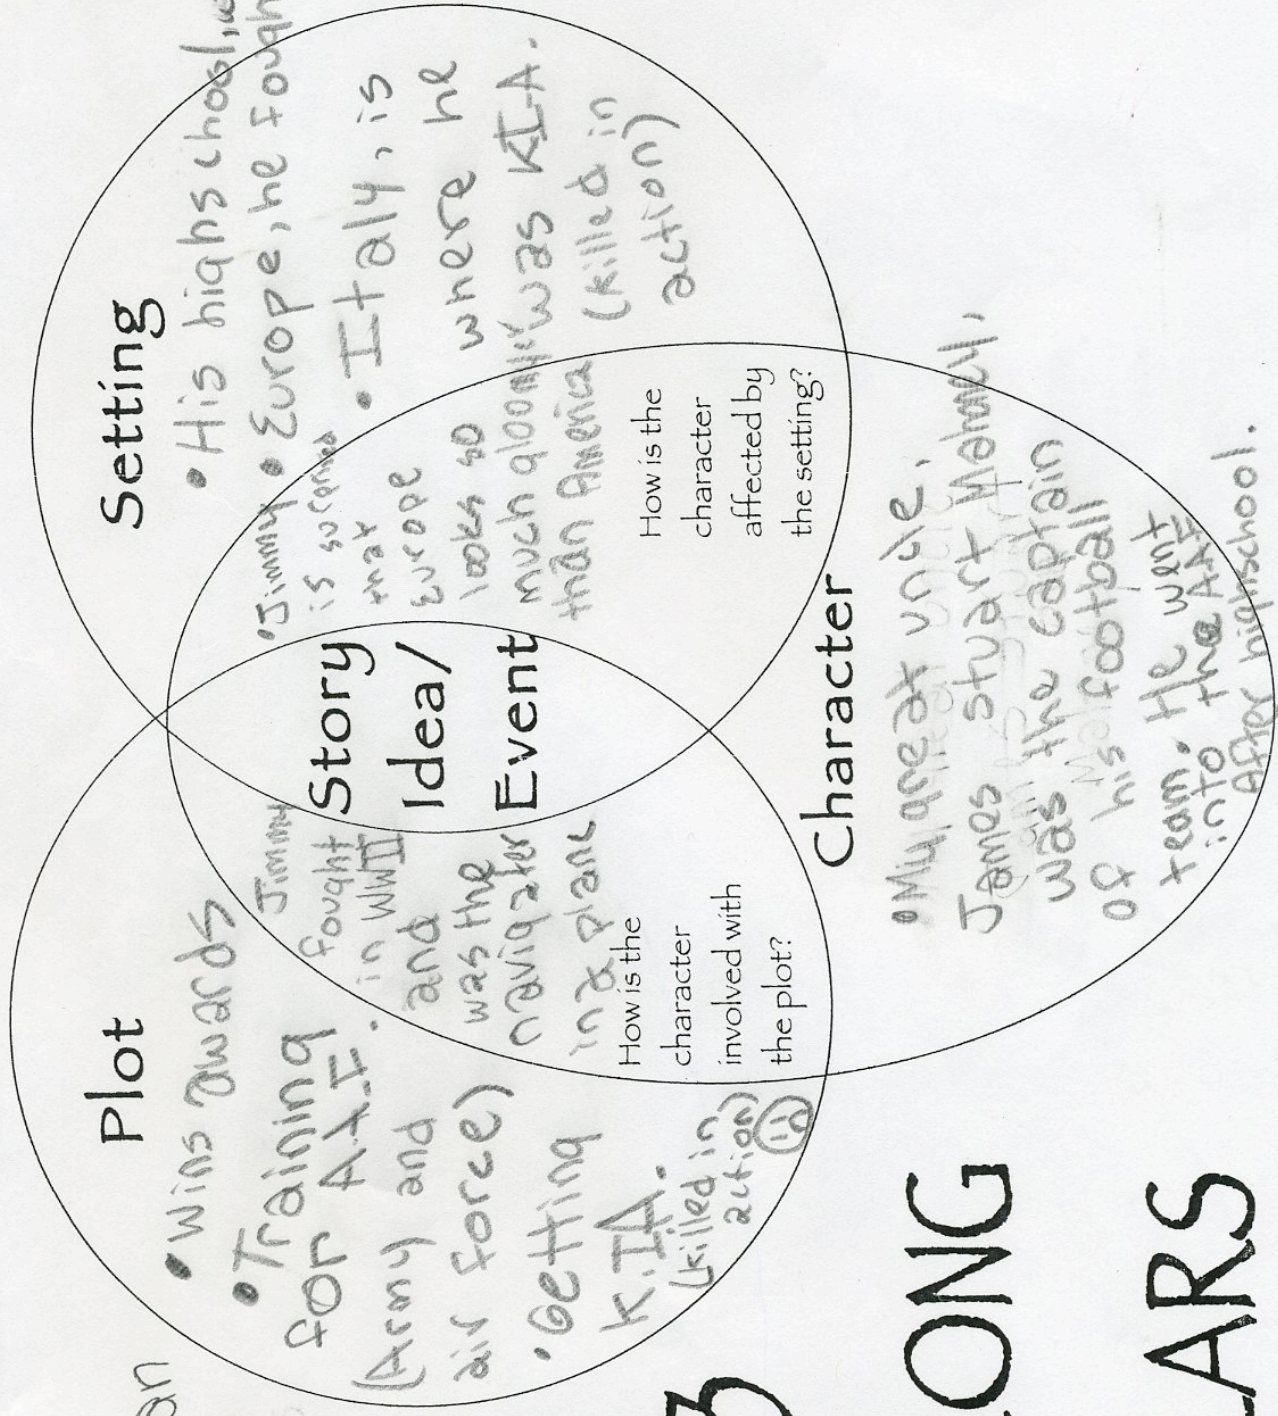 Plot
• Wins awards
• Training
for A.A.F.
(Army and
air force)
• Getting
K.IA.
(killed in
action)
Setting
• His highschool,
• Europe, he fough
• Italy, is
where he
was KIA.
(killed in
action)
Story
Idea/
Event
Jimmy
fought
in WWII
and
was the
navigater
in a plane
How is the
character
involved with
the plot?
• Jimmy
is surprised
that
Europe
looks so
much gloomyer
than America
How is the
character
affected by
the setting?
Character
• My great uncle,
James Stuart Mahaney,
was the captain
of his football
team. He want
into the AAF
After highschool.
an
3
LONG
LARS